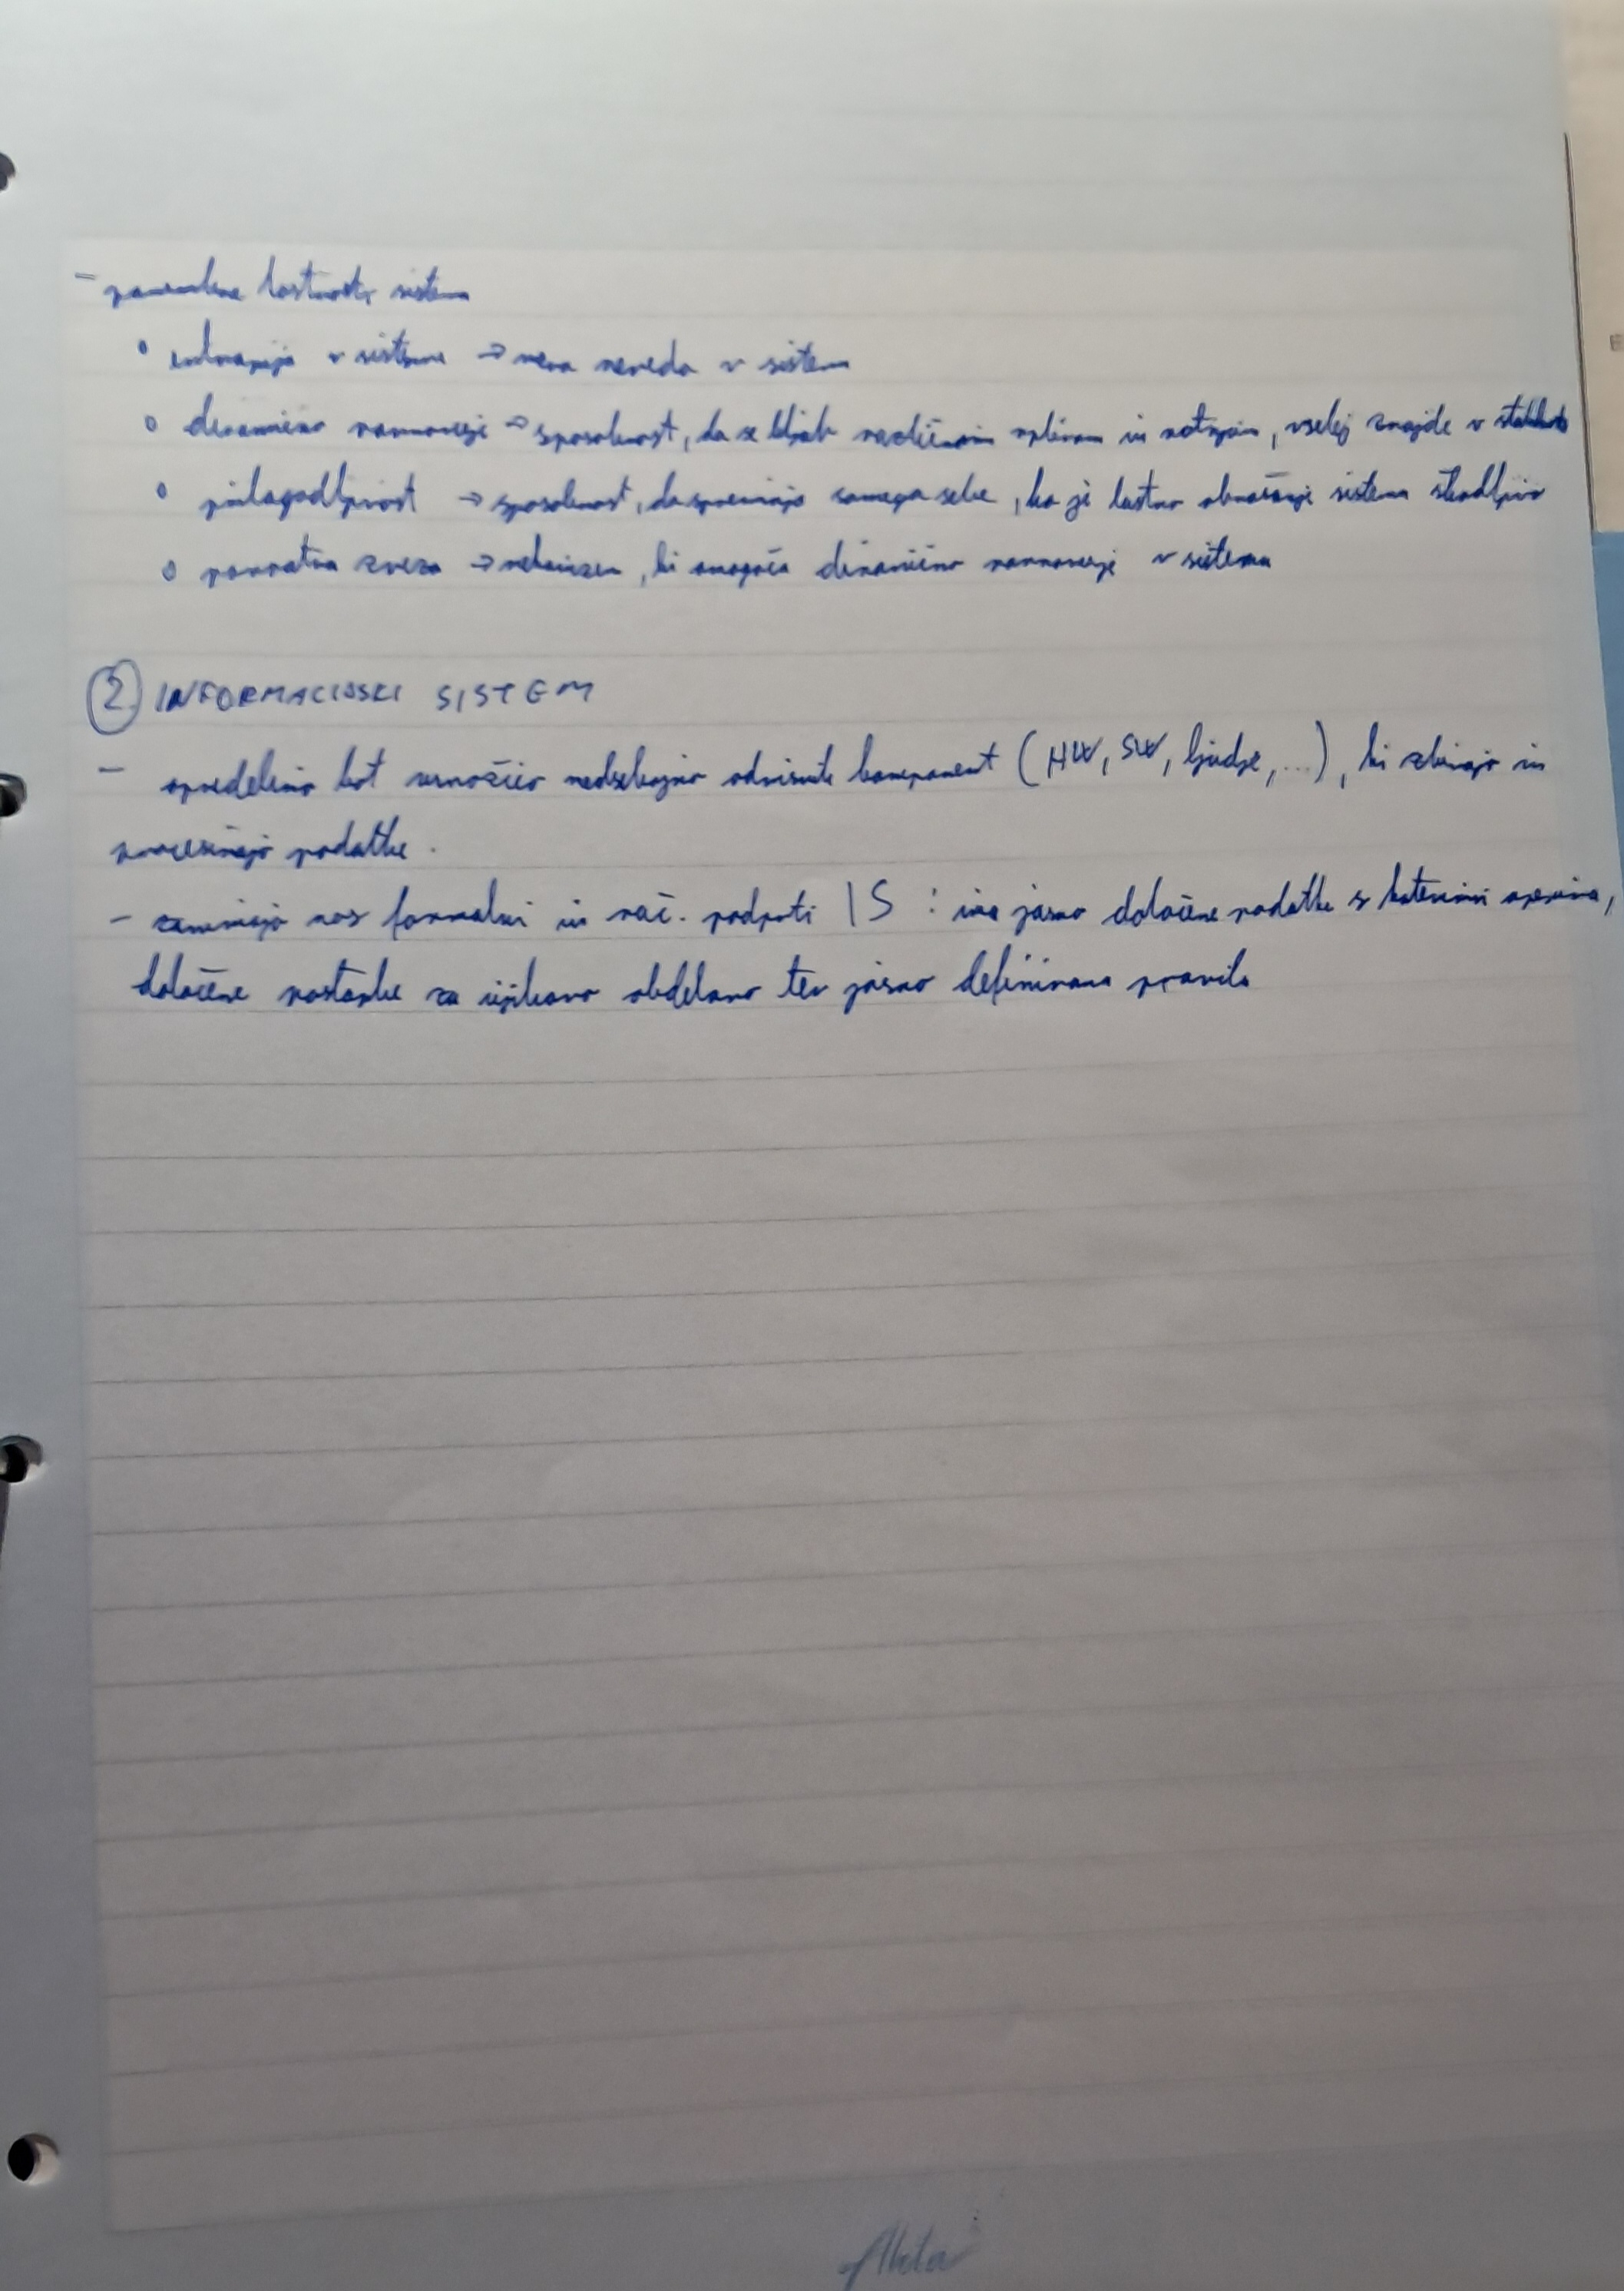 - pomembne lastnosti sistema
° entropija v sistemu → mera nereda v sistemu
° dinamično ravnovesje → sposobnost, da se kljub različnim vplivom in motnjam, vselej znajde v
° prilagodljivost → sposobnost, da spreminja samega sebe, ko je lastno obnašanje sistema škodljivo
° povratna zveza → mehanizem, ki omogoča dinamično ravnovesje v sistemu
2. INFORMACIJSKI SISTEM
- opredelimo kot množico medsebojno odvisnih komponent (HW, SW, ljudje, ...), ki zbirajo in
procesirajo podatke.
- zanimajo nas formalni in rač. podprti IS : ima jasno določene podatke s katerimi operira,
določene postopke za njihovo obdelavo ter jasno definirana pravila